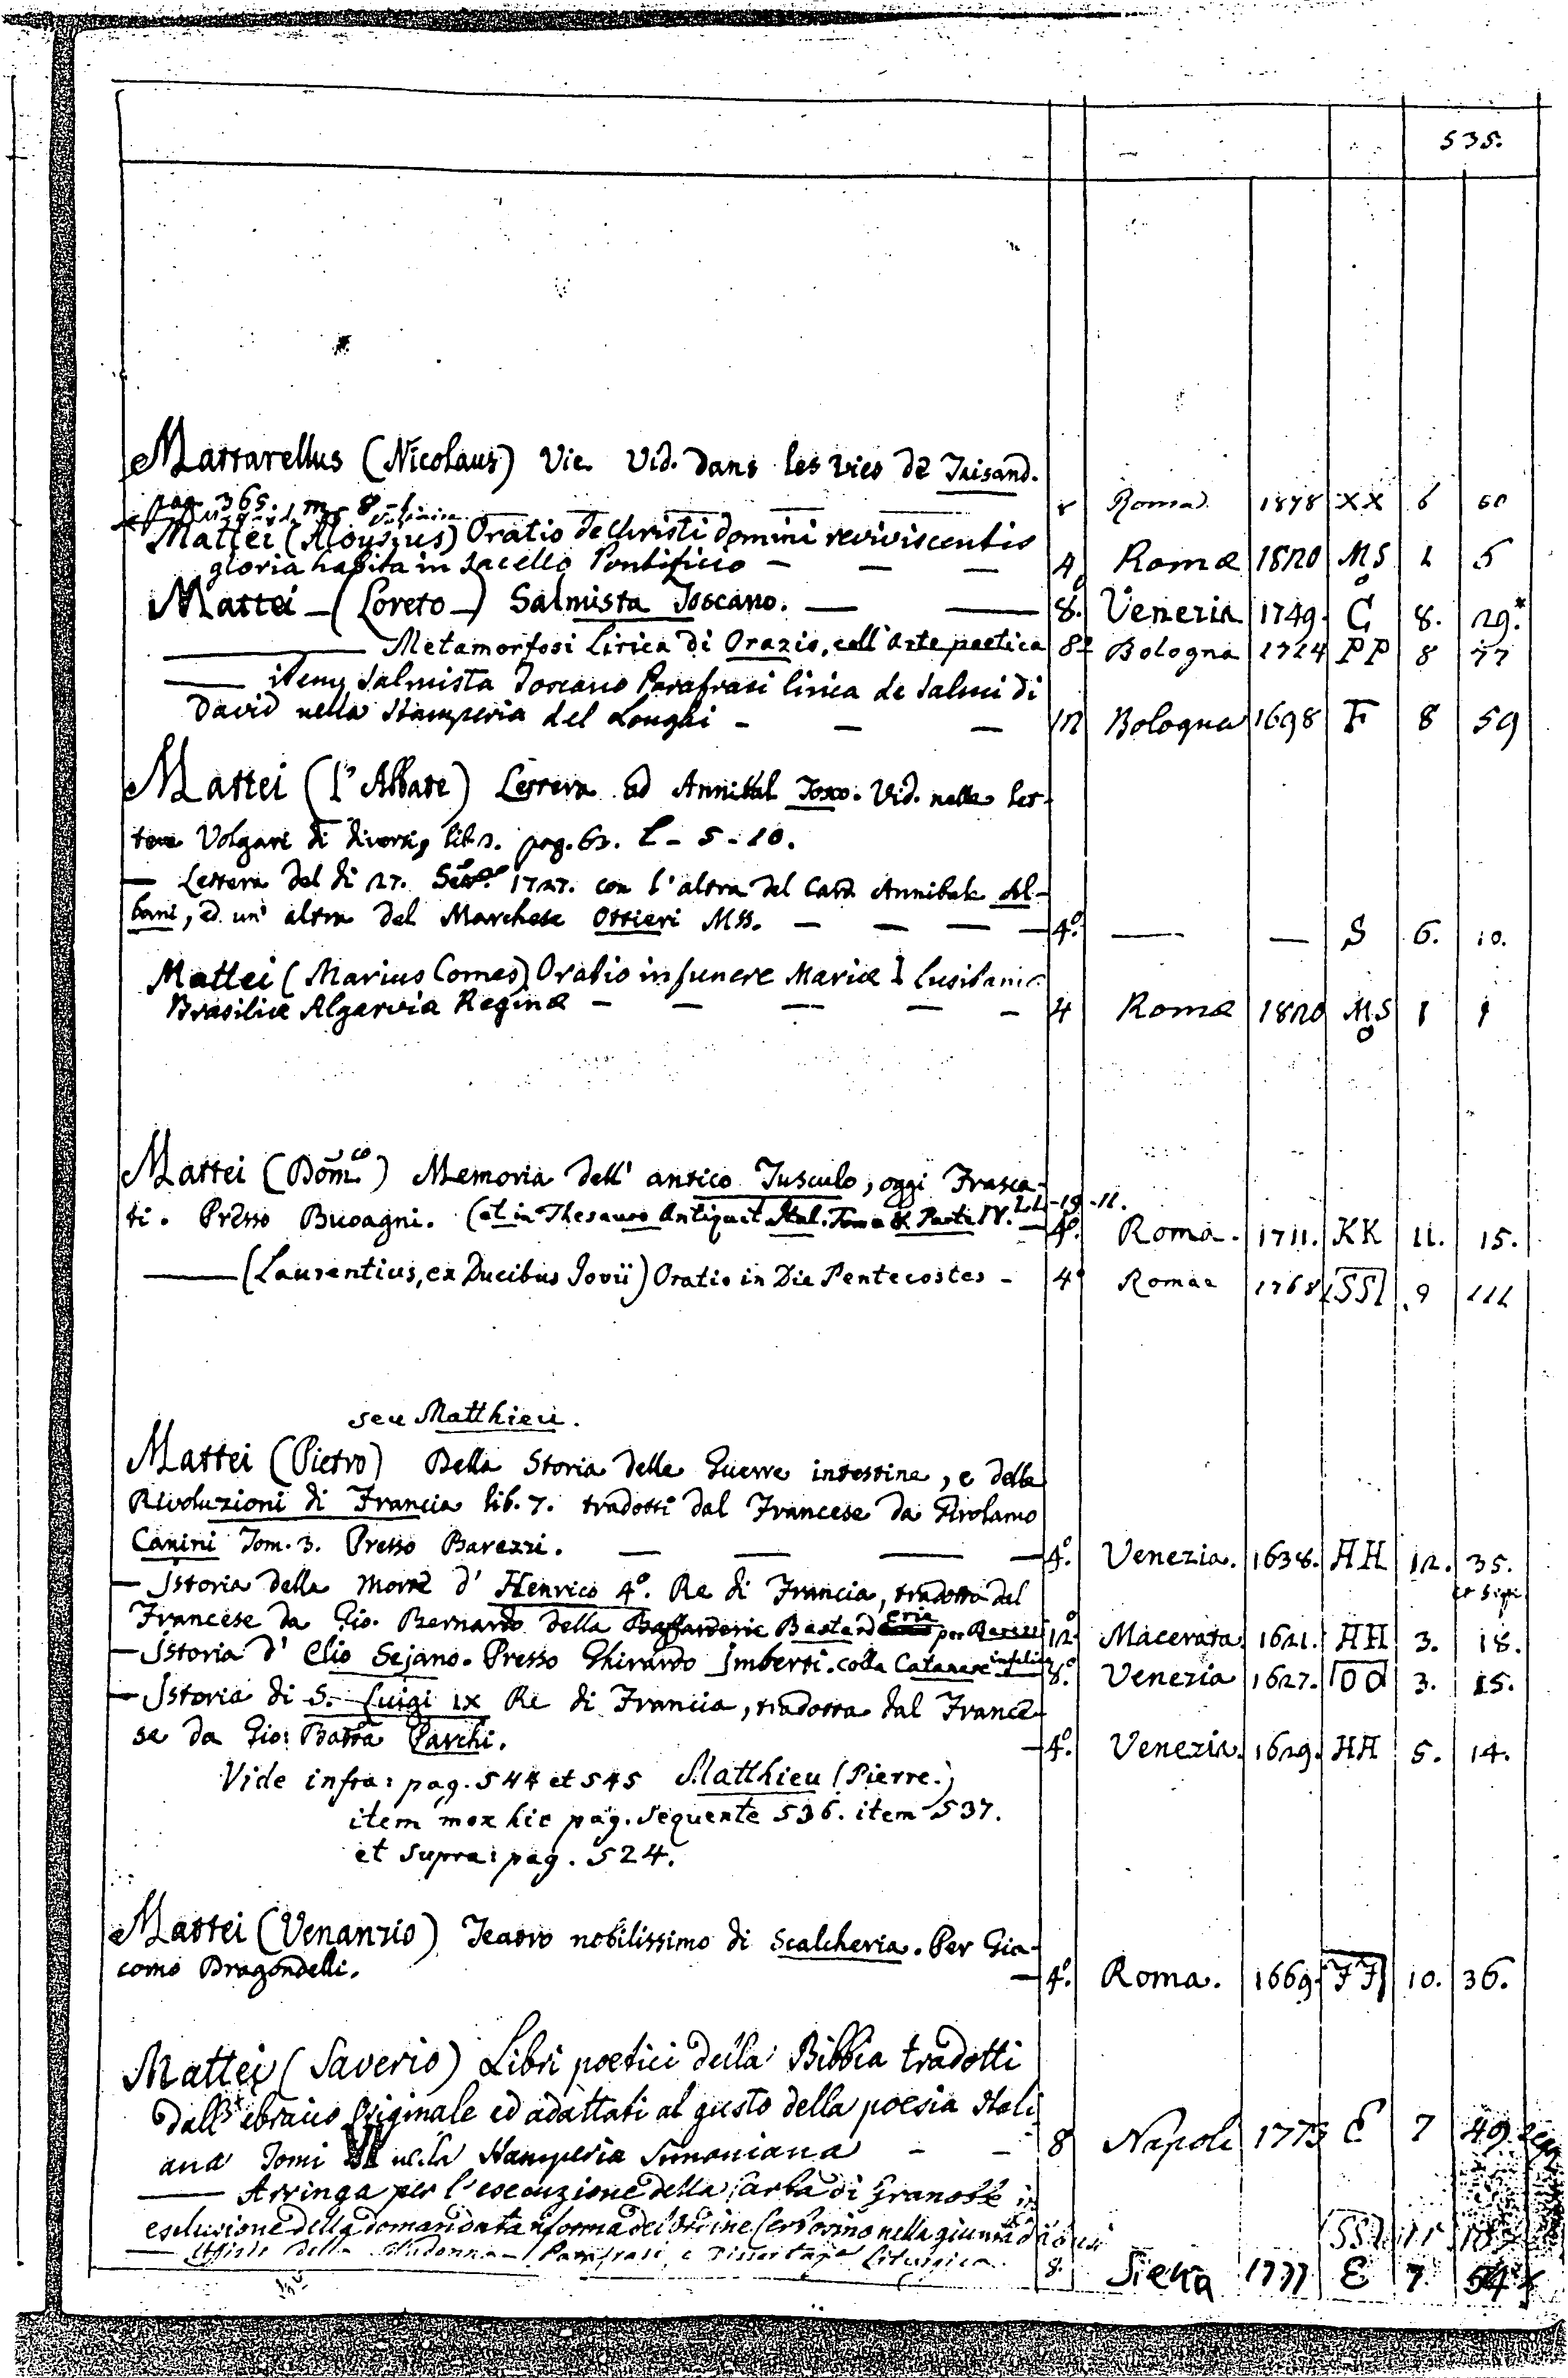 535.
Mattarellus (Nicolaus) Vie. Vid. dans les vies de Taisand.
pag. 365. m - 8 - 1. Roma 1878 XX 6 60
Mattei (Aloysius) Oratio de Christi domini reviviscentis
gloria habita in sacello Pontificio — — — 4 Romæ 1820 MS 1 5
Mattei — (Loreto —) Salmista Toscano. — — 8.º Venezia 1749. C 8. 29.*
— Metamorfosi Lirica di Orazio, coll' Arte poetica 8º Bologna 1724 PP 8 77
— item, Salmista Toscano Parafrasi lirica de Salmi di
David nella Stamperia del Longhi — — — 12 Bologna 1698 F 8 59
Mattei (l' Abbate) Lettera ad Annibal Toso. Vid. nelle let-
tere Volgari di diversi, lib. 2. pag. 62. L - 5 - 10.
— Lettera del di 27. 1727. con l' altra del Card. Annibale Al-
bani, ed un' altra del Marchese Ottieri MSS. — — — — 4º. — — S 6. 10.
Mattei (Marius Comes) Oratio in funere Mariæ I Lusitaniæ
Brasiliæ Algarviæ Reginæ — — — — — 4 Romæ 1820 MS o 1 1
Mattei (Dom.co) Memoria dell' antico Tusculo, oggi Frasca-
ti. Presso Buoagni. (et in Thesauro Antiquit Ital. Tomo 8. Parte IV. LL - 19 - 11. — 4º. Roma. 1711. KK 11. 15.
— (Laurentius, ex Ducibus Jovii) Oratio in Die Pentecostes — 4º Romae 1768 SS 9 111
seu Matthieu.
Mattei (Pietro) Della Storia delle Guerre intestine, e delle
Rivoluzioni di Francia lib. 7. tradotti dal Francese da Girolamo
Canini Tom. 3. Presso Barezzi. — — — — 4º. Venezia. 1638. HH 12. 35.
et seqq.
— Istoria della morte d' Henrico 4º. Re di Francia, tradotta dal
Francese da Gio. Bernardo della per 12º Macerata 1621. HH 3. 18.
— Istoria d' Elio Sejano. Presso Ghirardo Imberti. colla Catanese infelice 8.º Venezia 1627. OO 3. 15.
— Istoria di S. Luigi IX Re di Francia, tradotta dal France-
se da Gio: Batta Parchi. — 4º. Venezia. 1629. HH 5. 14.
Vide infra: pag. 544 et 545 Matthieu (Pierre.)
item mox hic pag. sequente 536. item 537.
et supra: pag. 524.
Mattei (Venanzio) Teatro nobilissimo di Scalcheria. Per Gia-
como Dragondelli. — 4º. Roma. 1669. FF 10. 36.
Mattei (Saverio) Libri poetici della Bibbia tradotti
dall' ebraico originale ed adattati al gusto della poesia Itali
ana Tomi nella Stamperia Simoniana — — 8 Napoli 1773 E 7 49
— Arringa per l' esecuzione della Carta di Granoble in
esclusione della domandata riforma dell' Ordine Certosino nella giunta SS 11
— Uffizio della Madonna — Parafrasi, e Dissertaz.e Liturgica. 8. Siena 1777 E 7 54